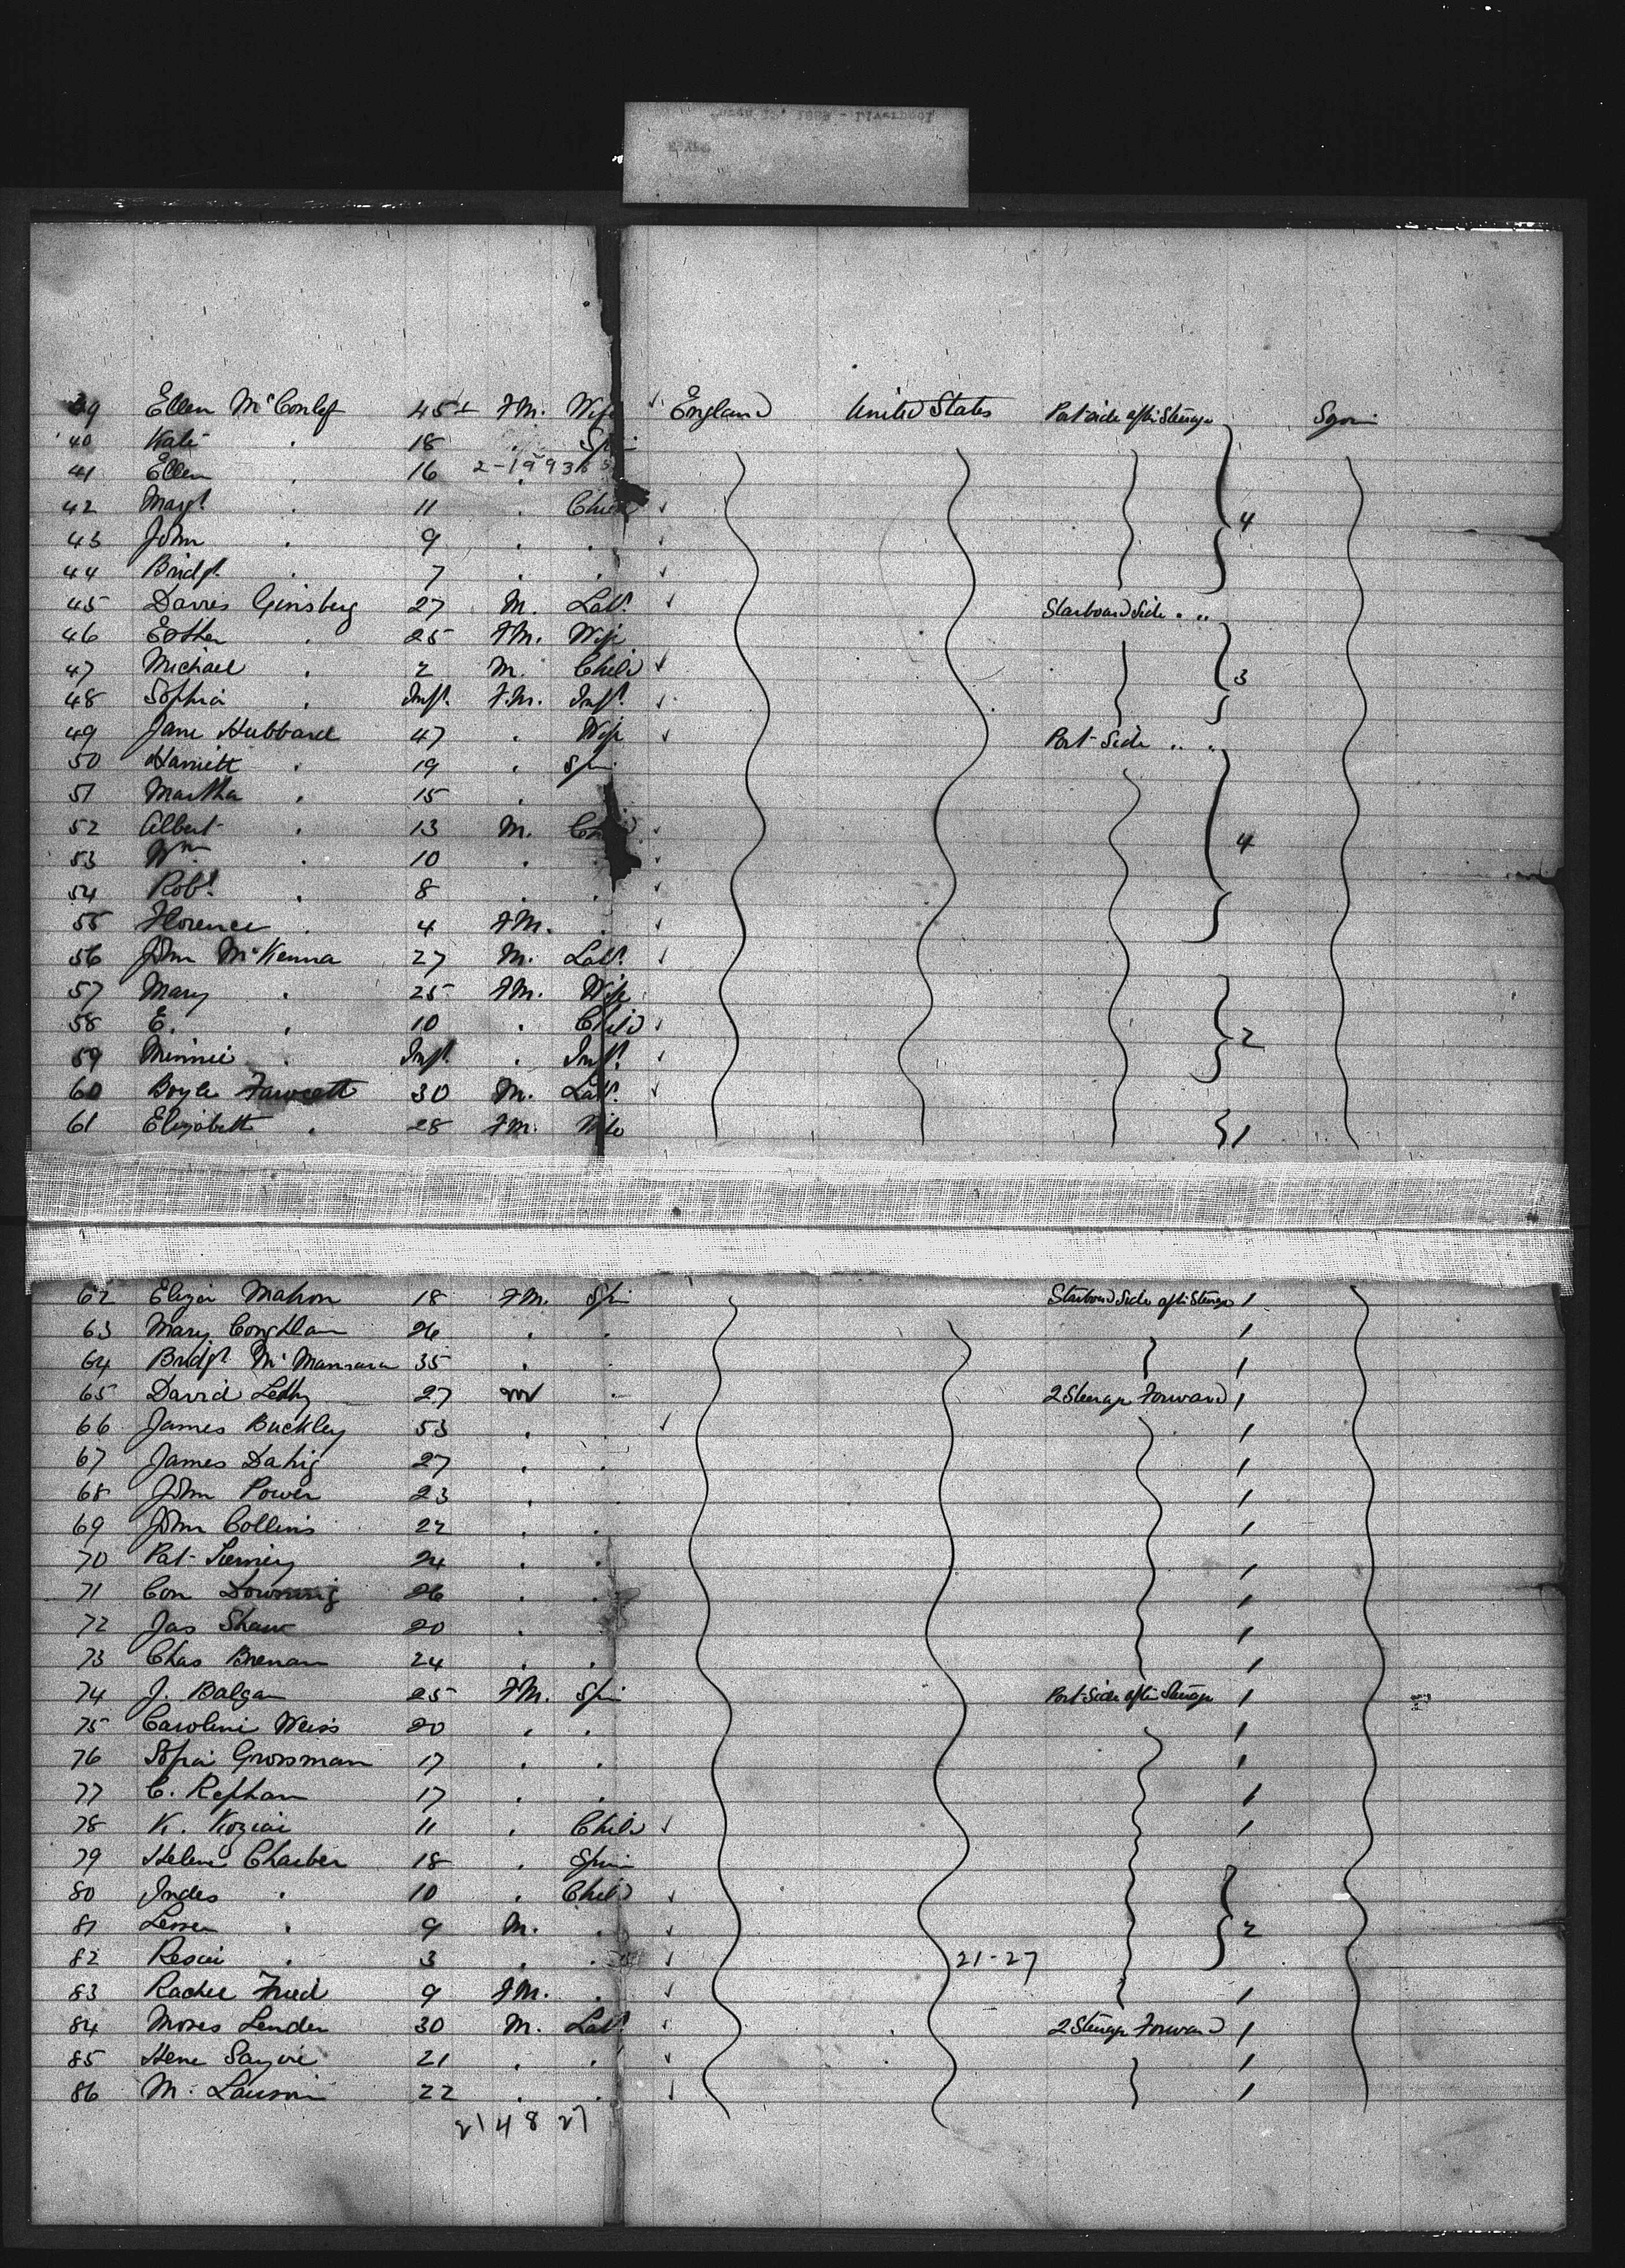 Liverpool
39 Ellen McConlef 45 FM. Wife England United States Port side after Steerage
40 Kate " 18 " Spin
41 Ellen " 16 "
42 Margt " 11 " Child 4
43 John " 9 " "
44 Bridgt " 7 " "
45 Davies Ginsberg 27 M. Labr Starboard Side " "
46 Esther " 25 FM. Wife
47 Michael " 2 M. Child 3
48 Sophia " Inft. FM. Inft.
49 Jane Hubbard 47 " Wife Port Side " "
50 Harriett " 19 " Spin
51 Martha " 15 "
52 Albert " 13 M. Child
53 Wm " 10 " " 4
54 Robt " 8 " "
55 Florence " 4 FM. "
56 John McKenna 27 M. Labr
57 Mary " 25 FM. Wife
58 E. " 10 " Child 2
59 Minnie " Inft. " Inft.
60 Boyle Fawcett 30 M. Labr
61 Elizabeth " 28 FM. Wife 1
62 Eliza Mahon 18 FM. Spin Starboard Side after Steerage 1
63 Mary Coughlan 26 " " 1
64 Bridgt McMannara 35 " " 1
65 David Lethy 27 M " 2 Steerage Forward 1
66 James Buckley 53 " " 1
67 James Dahig 27 " " 1
68 John Power 23 " " 1
69 John Collins 22 " " 1
70 Pat Tierney 24 " " 1
71 Con Downing 26 " " 1
72 Jas Shaw 20 " 1
73 Chas Brenan 24 " " 1
74 J. Balgan 25 FM. Spin Port Side after Steerage 1
75 Caroline Weiss 20 " " 1
76 Sofia Grossman 17 " " 1
77 C. Rephan 17 " " 1
78 K. Koziai 11 " Child 1
79 Helene Chaiber 18 " Spin
80 Indes " 10 " Child
81 Lesser " 9 M. " 2
82 Resai " 3 " " 21-27
83 Rachel Fried 9 FM. " 1
84 Moses Lender 30 M. Labr 2 Steerage Forward 1
85 Hene Sayvie 21 " " 1
86 M. Lauson 22 " " 1